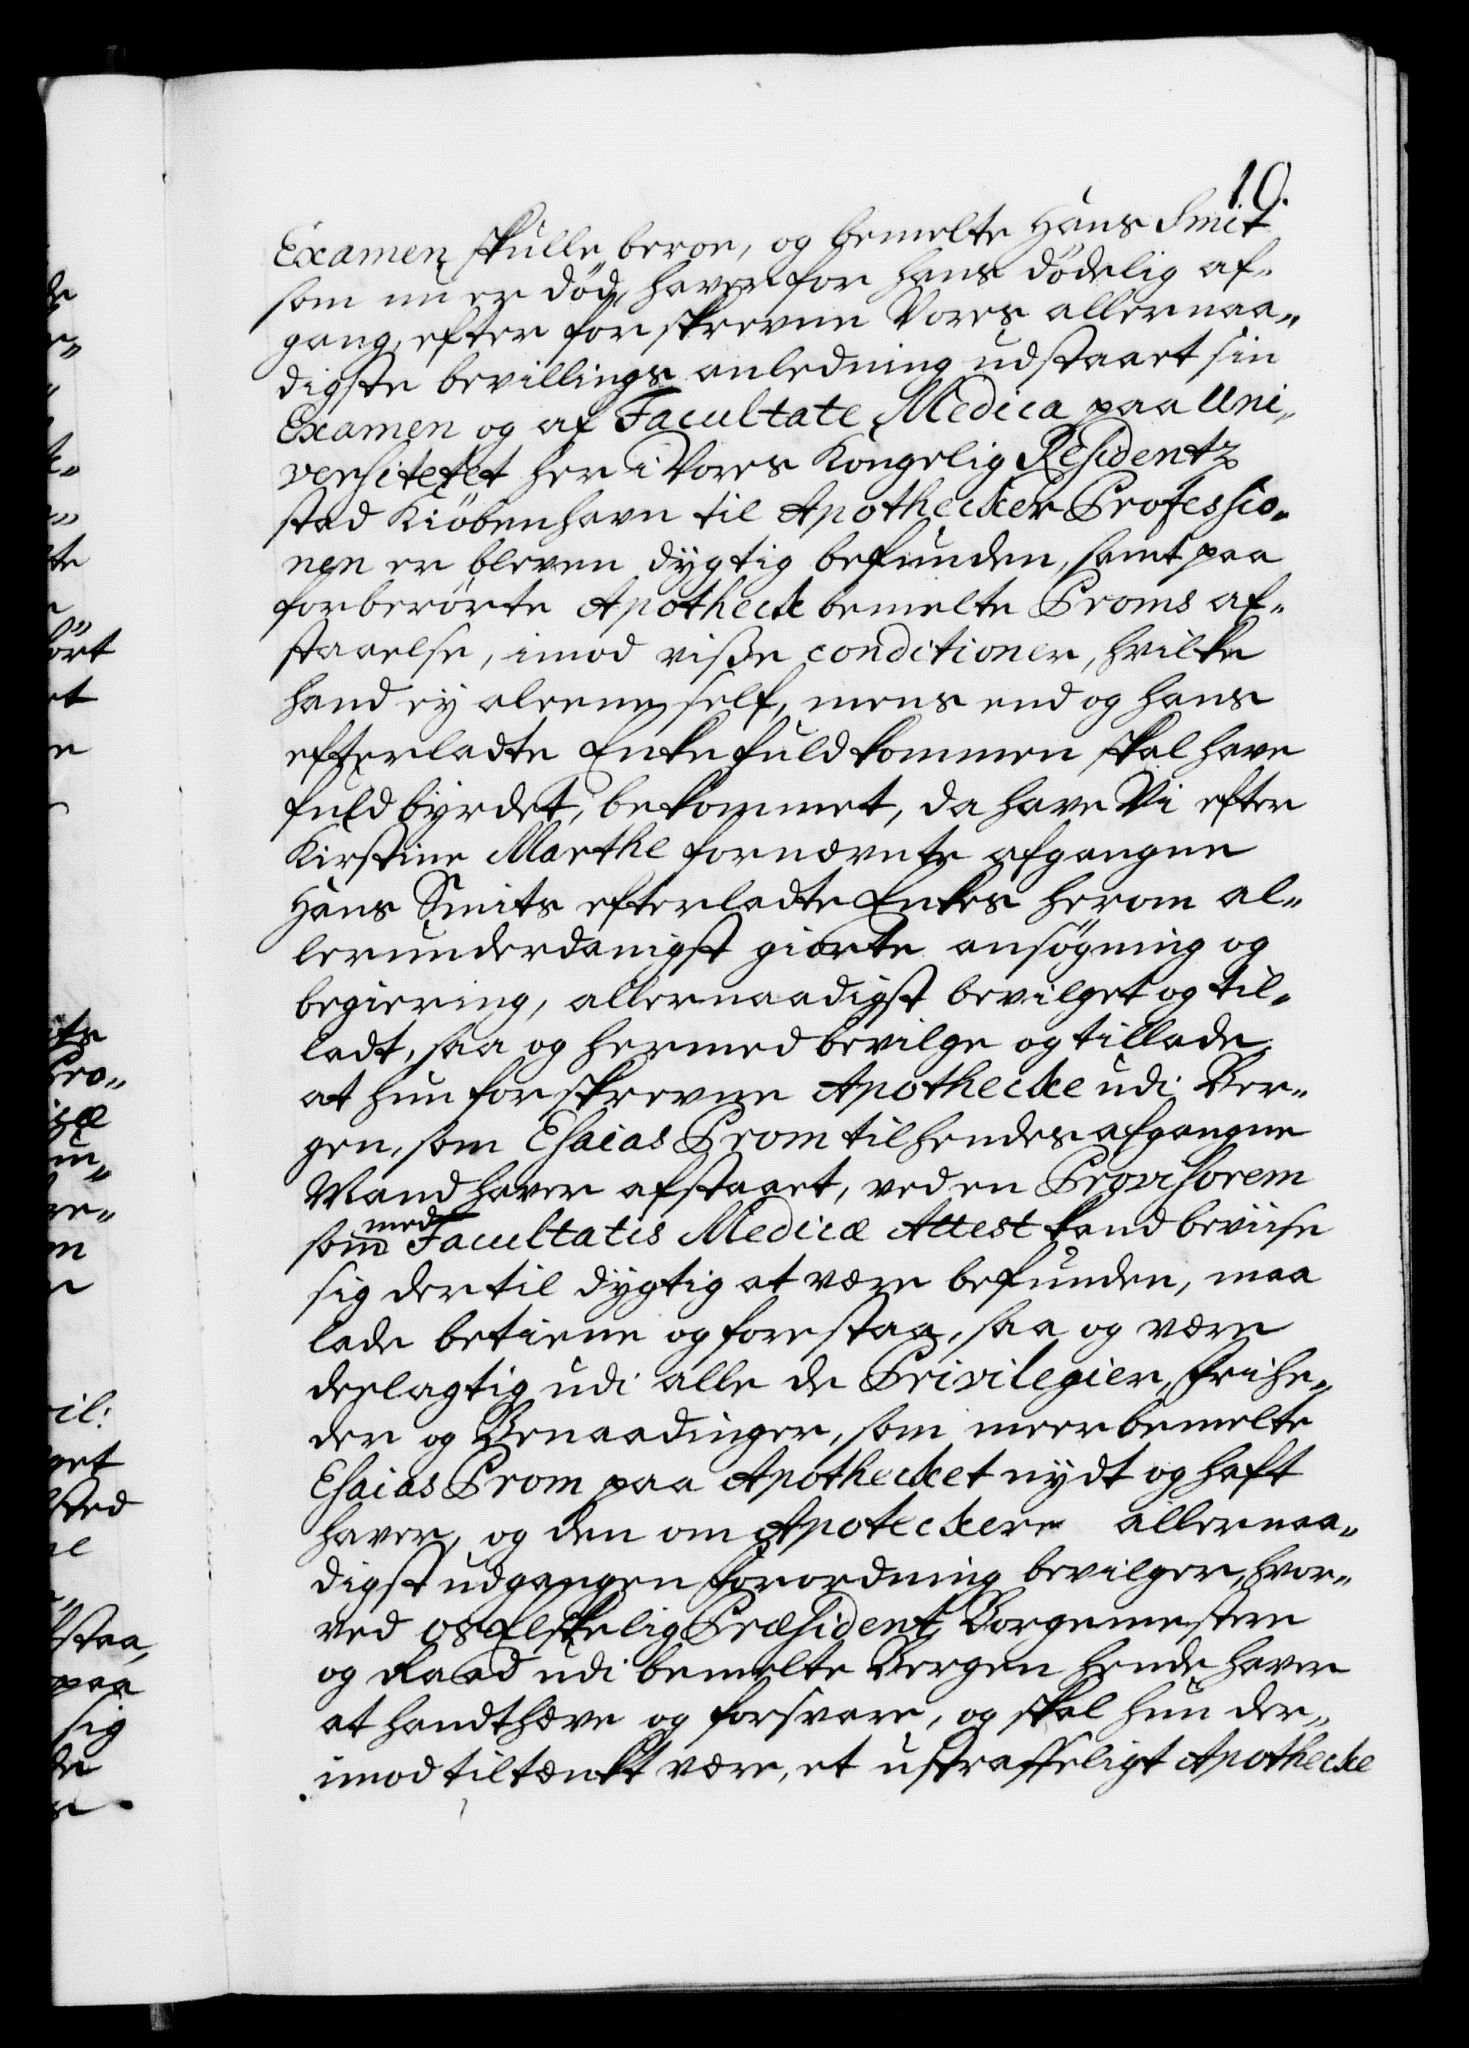 10.
Examen skulle beroe, og bemelte Hans Smit
som nu er död, haver for hans dödelig af-
gang, efter forskrevne Vores allernaa-
digste bevillings anledning udstaaet sin
Examen og af Facultate Medica paa Uni-
versitetet her i Vores Kongelig Residentz
stad Kiöbenhavn til Apothecker Professio-
nen er bleven dygtig befunden, samt paa
forberörte Apotheck bemelte Proms af-
staaelse, imod visse conditioner, hvilke
hand ey aleene self, mens end og hans
efterladte Enke fuldkommen skal have
fuldbyrdet, bekommet, da have Vi efter
Kirstine Marthe fornævnte afgangne
Hans Smits efterladte Enkes herom al-
lerunderdanigst giorte ansögning og
begiering, allernaadigst bevilget og til-
ladt, saa og hermed bevilge og tillade,
at hun forskrevne Apothecke udi Ber-
gen, som Esaias Prom til hendes afgangne
Mand haver afstaaet, ved en Provisorem
som med Facultatis Medicæ Attest kand beviise
sig dertil dygtig at være befunden, maa
lade betiene og forestaa, saa og være
deelagtig udi alle de Privilegier, frihe-
der og Benaadinger, som meerbemelte
Esaias Prom paa Apothecket nydt og haft
haver, og den om Apoteckere allernaa-
digst udgangen forordning bevilger, hvor-
ved os Elskelig Præsident, Borgemestere
og Raad udi bemelte Bergen hende haver
at handthæve og forsvare, og skal hun der-
imod tiltænkt være, et ustraffeligt Apothecke